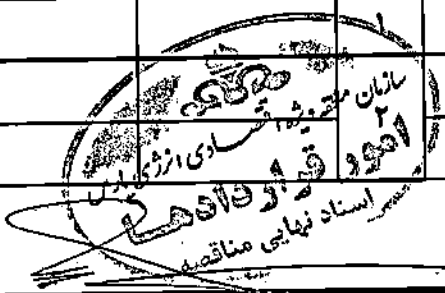 ۱
۲
سازمان منطقه ویژه اقتصادی انرژی پارس
امور قراردادها
اسناد نهایی مناقصه